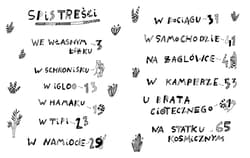 SPIS TREŚCI
WE WŁASNYM
ŁÓŻKU 3
W SCHRONISKU
W IGLOO 13
W HAMAKU
W TIPI 23
W NAMIOCIE 29
W POCIĄGU 37
W SAMOCHODZIE 41
NA ŻAGLÓWCE
W KAMPERZE 53
U BRATA
CIOTECZNEGO
NA STATKU 65
KOSMICZNYM